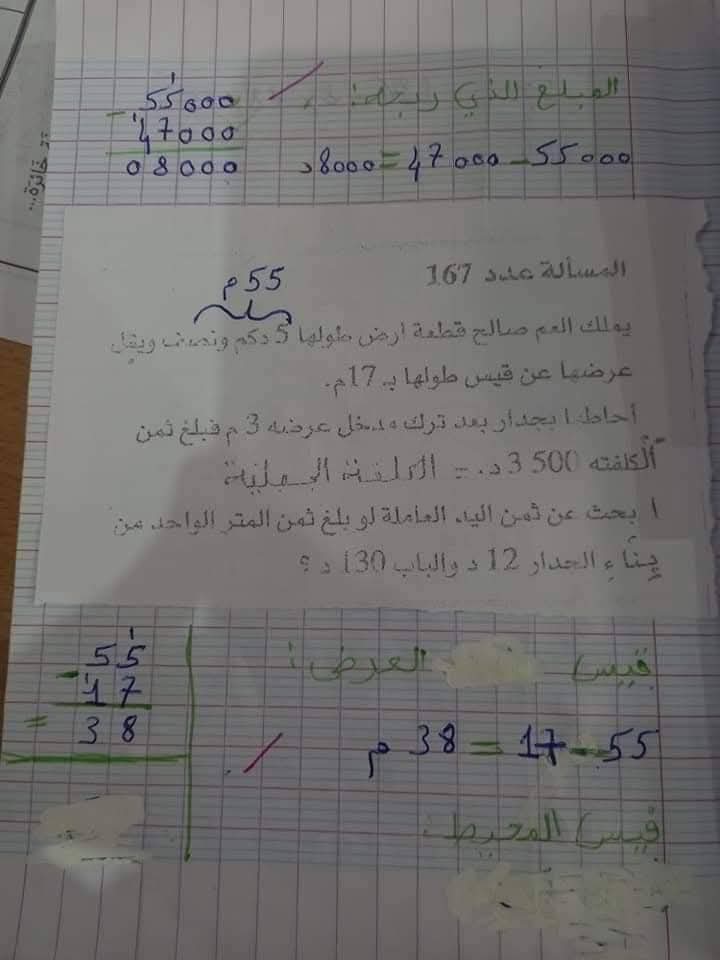 المبلغ الذي ربحه:
55000 - 47000 = 8000 د
55000
- 47000
08000
المسألة عدد 167
55 م
يملك العم صالح قطعة ارض طولها 5 دكم ونصف ويقل
عرضها عن قيس طولها بـ 17م.
أحاطها بجدار بعد ترك مدخل عرضه 3 م فبلغ ثمن
الكلفته 500 3 د. = الكلفة الجملية
ابحث عن ثمن اليد العاملة لو بلغ ثمن المتر الواحد من
بناء الجدار 12 د والباب 130 د ؟
قيس العرض:
55 - 17 = 38 م
55
- 17
= 38
قيس المحيط: